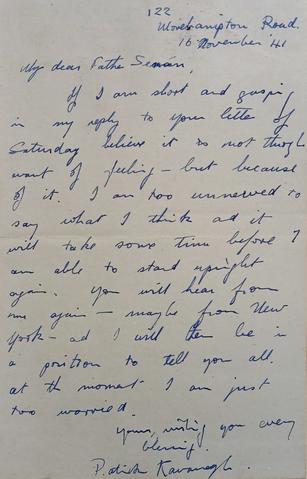 122
Morehampton Road.
16 November '41
My dear Father Senan,
If I am short and gasping
in my reply to your letter of
Saturday believe it is not through
want of feeling – but because
of it. I am too unnerved to
say what I think ad it
will take some time before I
am able to stand upright
again. You will hear from
me again – maybe from New
York – ad I will then be in
a position to tell you all.
at the moment I am just
too worried.
Yours, wishing you every
blessing.
Patrick Kavanagh.